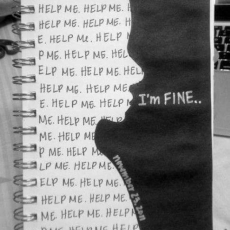 HELP ME. HELP ME. HE
HELP ME. HELP ME. HEL
E. HELP ME. HELP M
P ME. HELP ME. HEL
ELP ME. HELP ME. HE
HELP ME. HELP ME. H
E. HELP ME. HELP M
I'm FINE..
ME. HELP ME. HELP
P ME. HELP M
ELP ME. HELP M
HELP ME. HELP ME.
HELP ME. HELP ME.
ELP ME. HELP ME. HE
HELP ME. HELP ME. H
ME. HELP ME. HELP
november 29, 2011